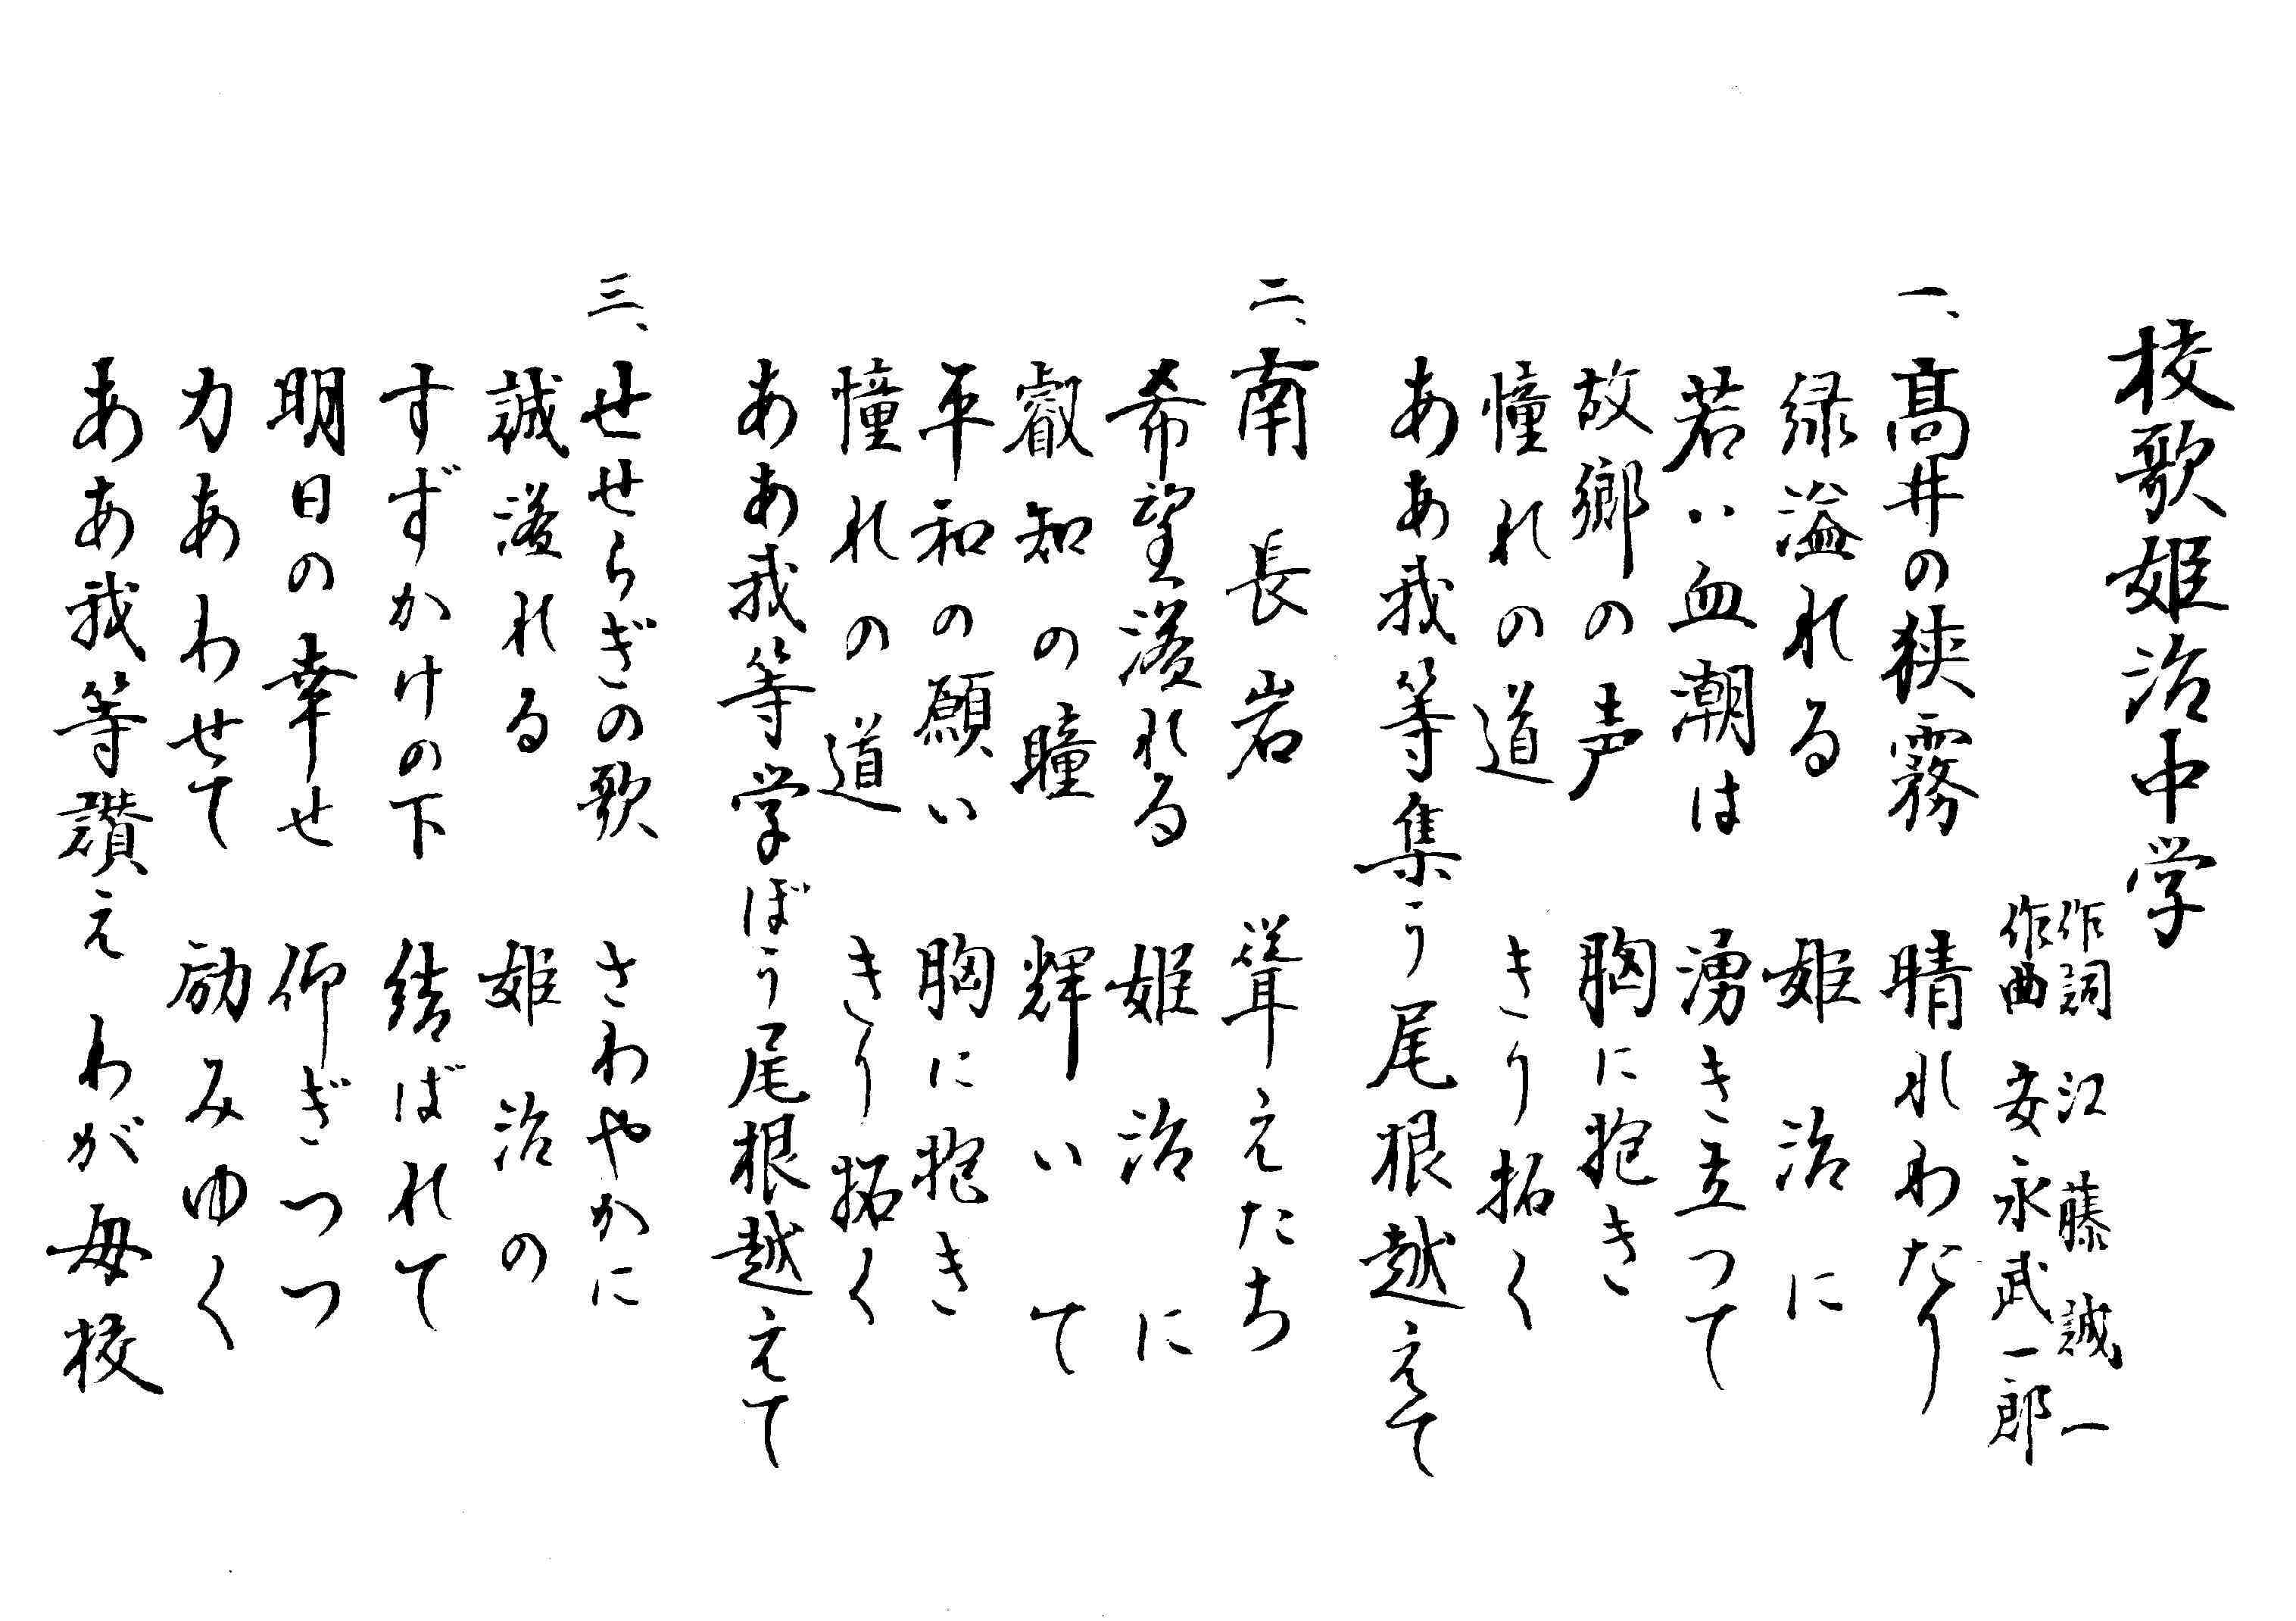 校歌姫治中学
作詞 江藤誠一
作曲 安永武一郎
一、高井の狭霧 晴れわたり
緑溢れる 姫治に
若い血潮は 湧き立つて
故郷の声 胸に抱き
憧れの道 きり拓く
ああ我等集う尾根越えて
二、南長岩 聳えたち
希望溢れる 姫治に
叡知の瞳 輝いて
平和の願い 胸に抱き
憧れの道 きり拓く
ああ我等学ぼう尾根越えて
三、せせらぎの歌 さわやかに
誠溢れる 姫治の
すずかけの下 結ばれて
明日の幸せ 仰ぎつつ
力あわせて 励みゆく
ああ我等讃え わが母校